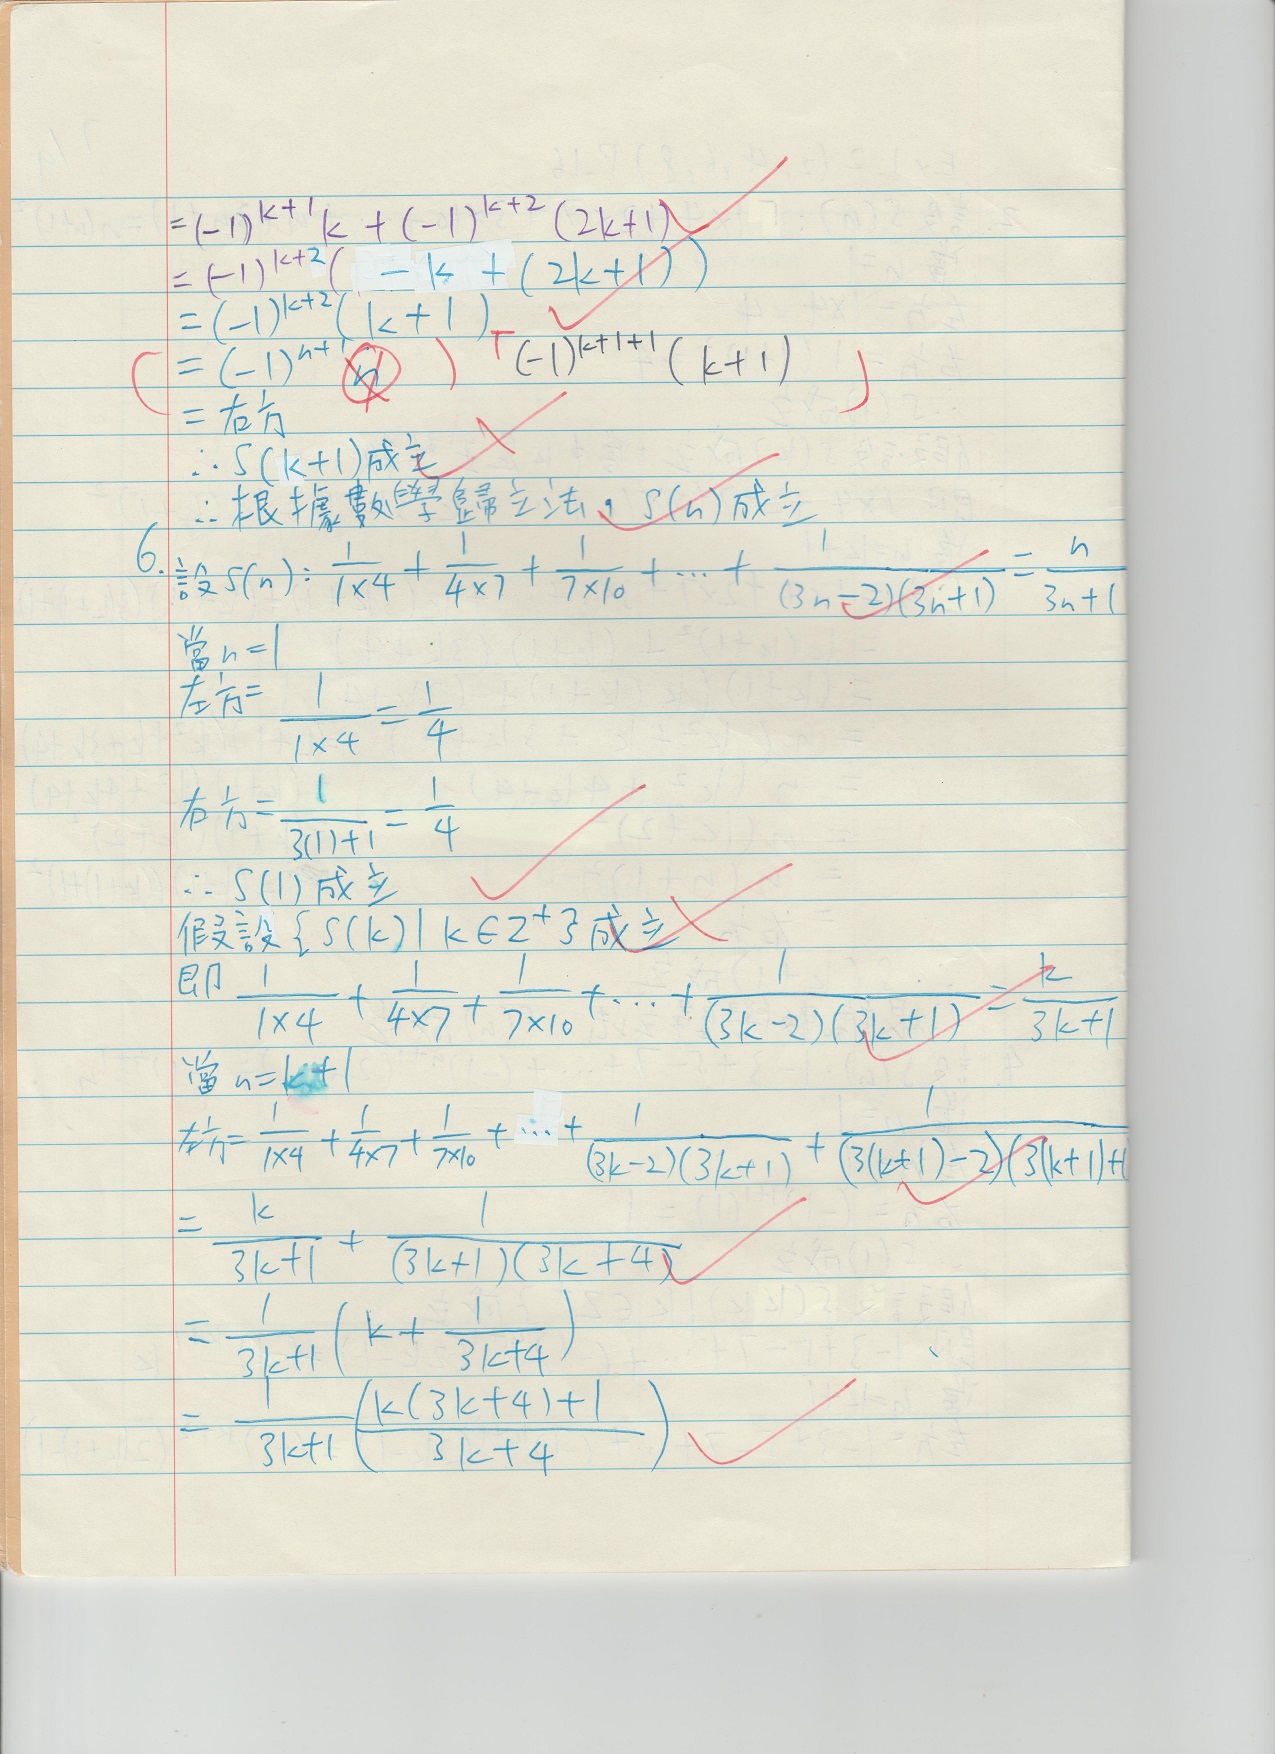 =(-1)^{k+1}k+(-1)^{k+2}(2k+1)
=(-1)^{k+2}(-k+(2k+1))
=(-1)^{k+2}(k+1)
=(-1)^{n+1}n (-1)^{k+1+1}(k+1)
=右方
∴S(k+1)成立
∴根據數學歸立法,S(n)成立
6. 設S(n):1/(1×4)+1/(4×7)+1/(7×10)+...+1/((3n-2)(3n+1))=n/(3n+1)
當n=1
左方=1/(1×4)=1/4
右方=1/(3(1)+1)=1/4
∴S(1)成立
假設{S(k)|k∈Z^+}成立
即1/(1×4)+1/(4×7)+1/(7×10)+...+1/((3k-2)(3k+1))=k/(3k+1)
當n=k+1
左方=1/(1×4)+1/(4×7)+1/(7×10)+...+1/((3k-2)(3k+1))+1/((3(k+1)-2)(3(k+1)+1
=k/(3k+1)+1/((3k+1)(3k+4))
=1/(3k+1)(k+1/(3k+4))
=1/(3k+1)((k(3k+4)+1)/(3k+4))